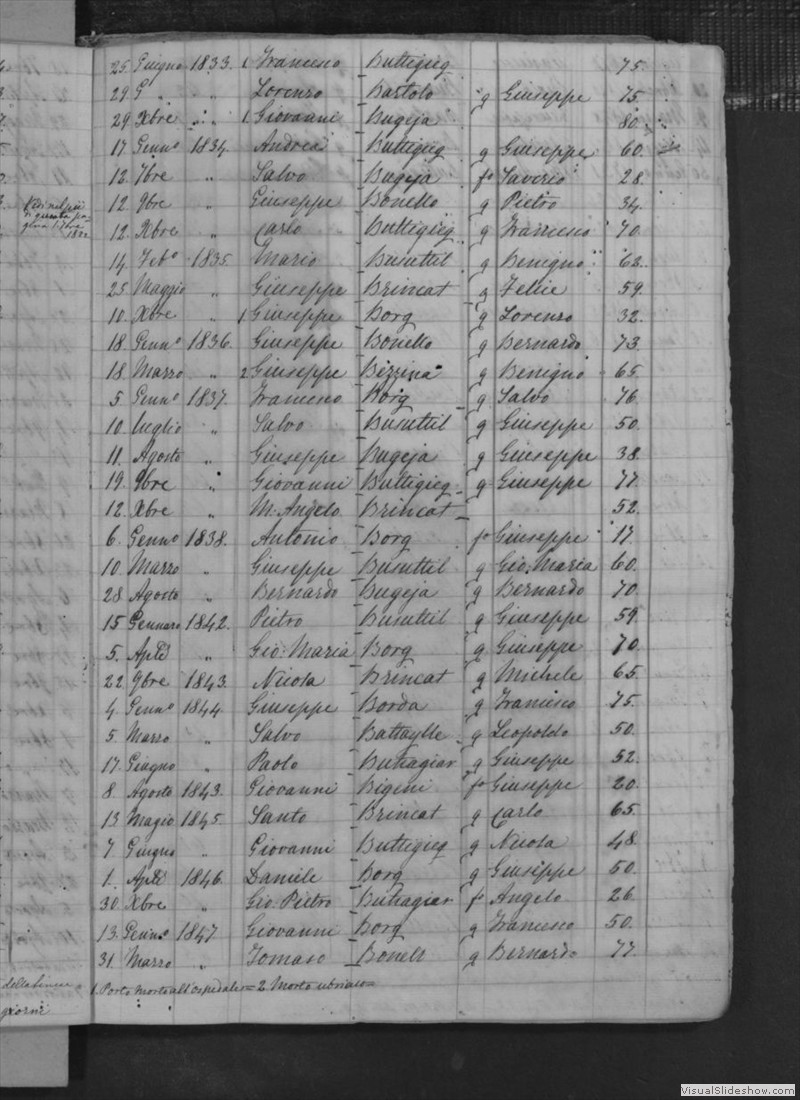 25 Giugno 1833. 1 Francesco Buttigieg 75.
29 G " " Lorenzo Bartolo g Giuseppe 75.
29 Xbre " " 1 Giovanni Bugeja 80.
17 Genn.o 1834. Andrea Buttigieg g Giuseppe 60.
12. 7bre " Salvo Bugeja fo Saverio 28.
12. 9bre " Giuseppe Bonello g Pietro 34.
12. Xbre " Carlo Buttigieg g Francesco 70.
14 Feb.o 1835. Mario Busuttil g Benigno 62.
25 Maggio " Giuseppe Brincat g Felice 59.
10. Xbre " 1 Giuseppe Borg g Lorenzo 32.
18 Genn.o 1836. Giuseppe Bonello g Bernardo 73.
18 Marzo " 2 Giuseppe Bezzina g Benigno 65.
5 Genn.o 1837. Francesco Borg g Salvo 76.
10 Luglio " Salvo Busuttil g Giuseppe 50.
11. Agosto " Giuseppe Bugeja g Giuseppe 38.
19. 9bre " Giovanni Buttigieg g Giuseppe 77.
12 Xbre " M. Angelo Brincat 52.
6. Genn.o 1838. Antonio Borg fo Giuseppe 17.
10. Marzo " Giuseppe Busuttil g Gio: Maria 60.
28 Agosto " Bernardo Bugeja g Bernardo 70.
15 Gennaro 1842. Pietro Busuttil g Giuseppe 59
5. Aple " Gio: Maria Borg g Giuseppe 70.
22 9bre 1843. Nicola Brincat g Michele 65.
4 Genn.o 1844 Giuseppe Borda g Francesco 75.
5 Marzo " Salvo Battaglle g Leopoldo 50.
17. Giugno " Paolo Buhagiar g Giuseppe 52.
8 Agosto 1843. Giovanni Bigeni fo Giuseppe 20.
13 Magio 1845 Santo Brincat g Carlo 65.
7 Giugno " Giovanni Buttigieg g Nicola 48.
1. Aple 1846. Daniele Borg g Giuseppe 50.
30 Xbre " Gio: Pietro Buhagiar fo Angelo 26
13. Genn.o 1847 Giovanni Borg g Francesco 50.
31 Marzo " Tomaso Bonell g Bernardo 77.
1. Porto morto all'ospedale = 2. Morto ubriaco =
giorni
VisualSlideshow.com